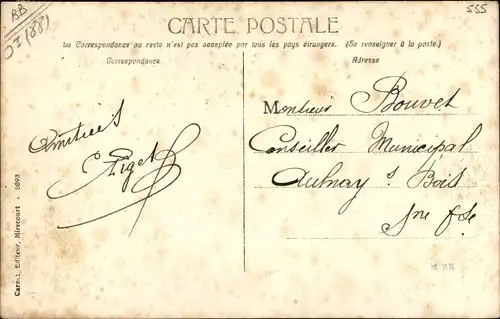 BB
555
CARTE POSTALE
La Correspondance au recto n'est pas acceptée par tous les pays étrangers. (Se renseigner à la poste.)
Correspondance
Adresse
Amitiés
Monsieur Bouvet
Conseiller Municipal
Aulnay s Bois
Sne &
Carnet, Editeur, Mirecourt - 8093
M BB